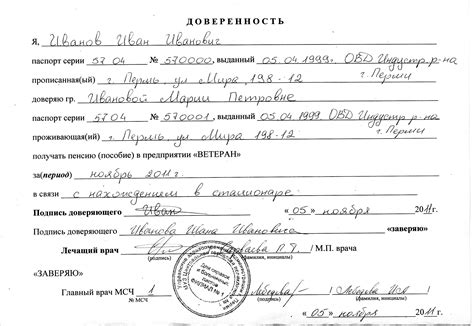 ДОВЕРЕННОСТЬ
Я, Иванов Иван Иванович
паспорт серии 57 04 № 570000, выданный 05.04.1999. ОВД Индустр. р-на
г. Перми
прописанная(ый) г. Пермь, ул Мира 198-12
доверяю гр. Ивановой Марии Петровне
паспорт серии 5704 № 570001, выданный 05.04.1999 ОВД Индустр р-на
г. Перми
проживающая(ий) г. Пермь, ул. Мира 198-12.
получать пенсию (пособие) в предприятии «ВЕТЕРАН»
за(период) ноябрь 2011г.
в связи с нахождением в стационаре.
Подпись доверяющего Иван «05» ноября 2011г.
Подпись доверяющего Иванова Ивана Ивановича «заверяю»
Лечащий врач М.П. врача
(подпись) (фамилия, инициалы)
«ЗАВЕРЯЮ»
Для справок и больничных листов
Главный врач МСЧ 1
№ МСЧ (подпись) (фамилия, инициалы)
«05» ноября 2011г.